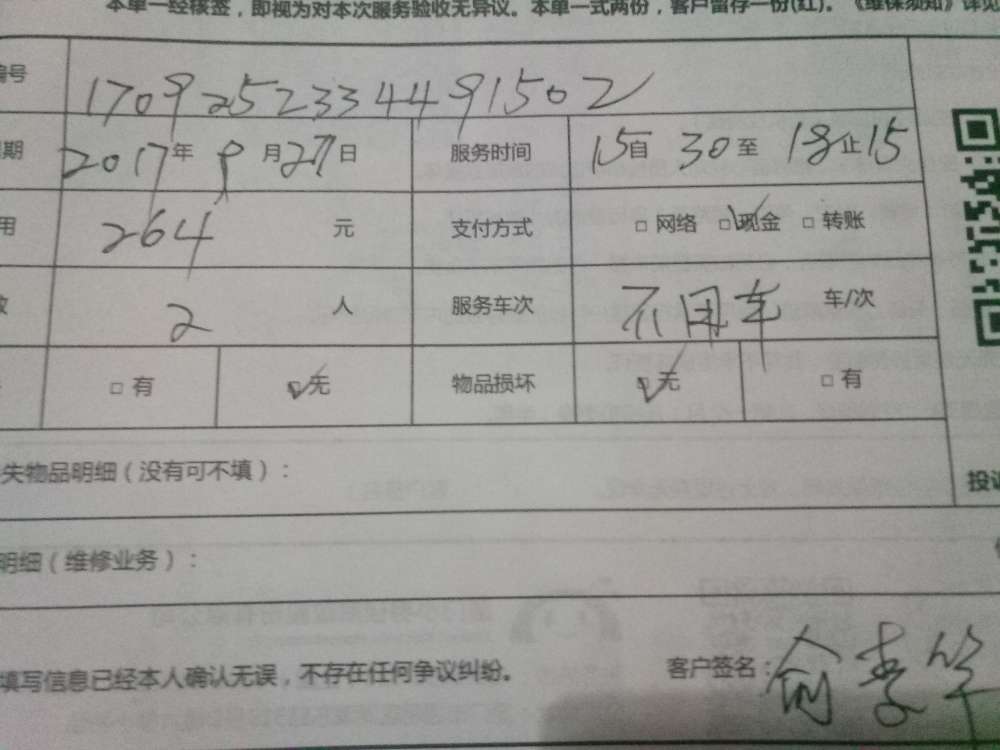 本单一经核签，即视为对本次服务验收无异议。本单一式两份，客户留存一份(红)。《维保须知》详见
编号 1709252334491502
期 2017年 9月27日 服务时间 15自 30至 18止15
用 264 元 支付方式 □ 网络 □现金 □ 转账
数 2 人 服务车次 不用车 车/次
□ 有 □无 物品损坏 □无 □ 有
失物品明细（没有可不填）：
投诉
明细（维修业务）：
填写信息已经本人确认无误，不存在任何争议纠纷。 客户签名：